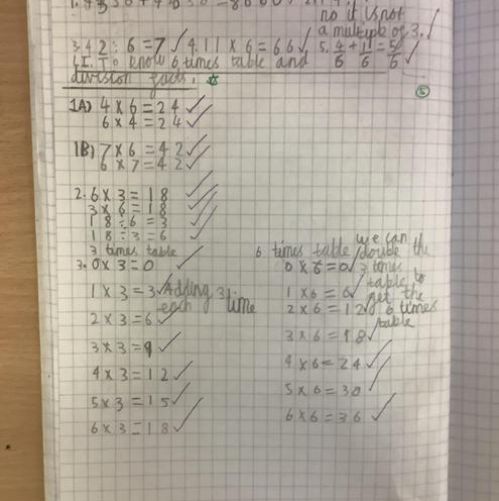 no it is not
a multiple of 3.
3. 42 ÷ 6 = 7 4. 11 × 6 = 66 5. 4/6 + 1/6 = 5/6
L.I. To know 6 times table and
division facts.
1A) 4 × 6 = 24
6 × 4 = 24
1B) 7 × 6 = 42
6 × 7 = 42
2. 6 × 3 = 18
3 × 6 = 18
18 ÷ 6 = 3
18 ÷ 3 = 6
3 times table
3. 0 × 3 = 0
1 × 3 = 3 Adding 3
each time
2 × 3 = 6
3 × 3 = 9
4 × 3 = 12
5 × 3 = 15
6 × 3 = 18
6 times table
0 × 6 = 0
1 × 6 = 6
2 × 6 = 12
3 × 6 = 18
4 × 6 = 24
5 × 6 = 30
6 × 6 = 36
we can
double the
3 times
table to
get the
6 times
table